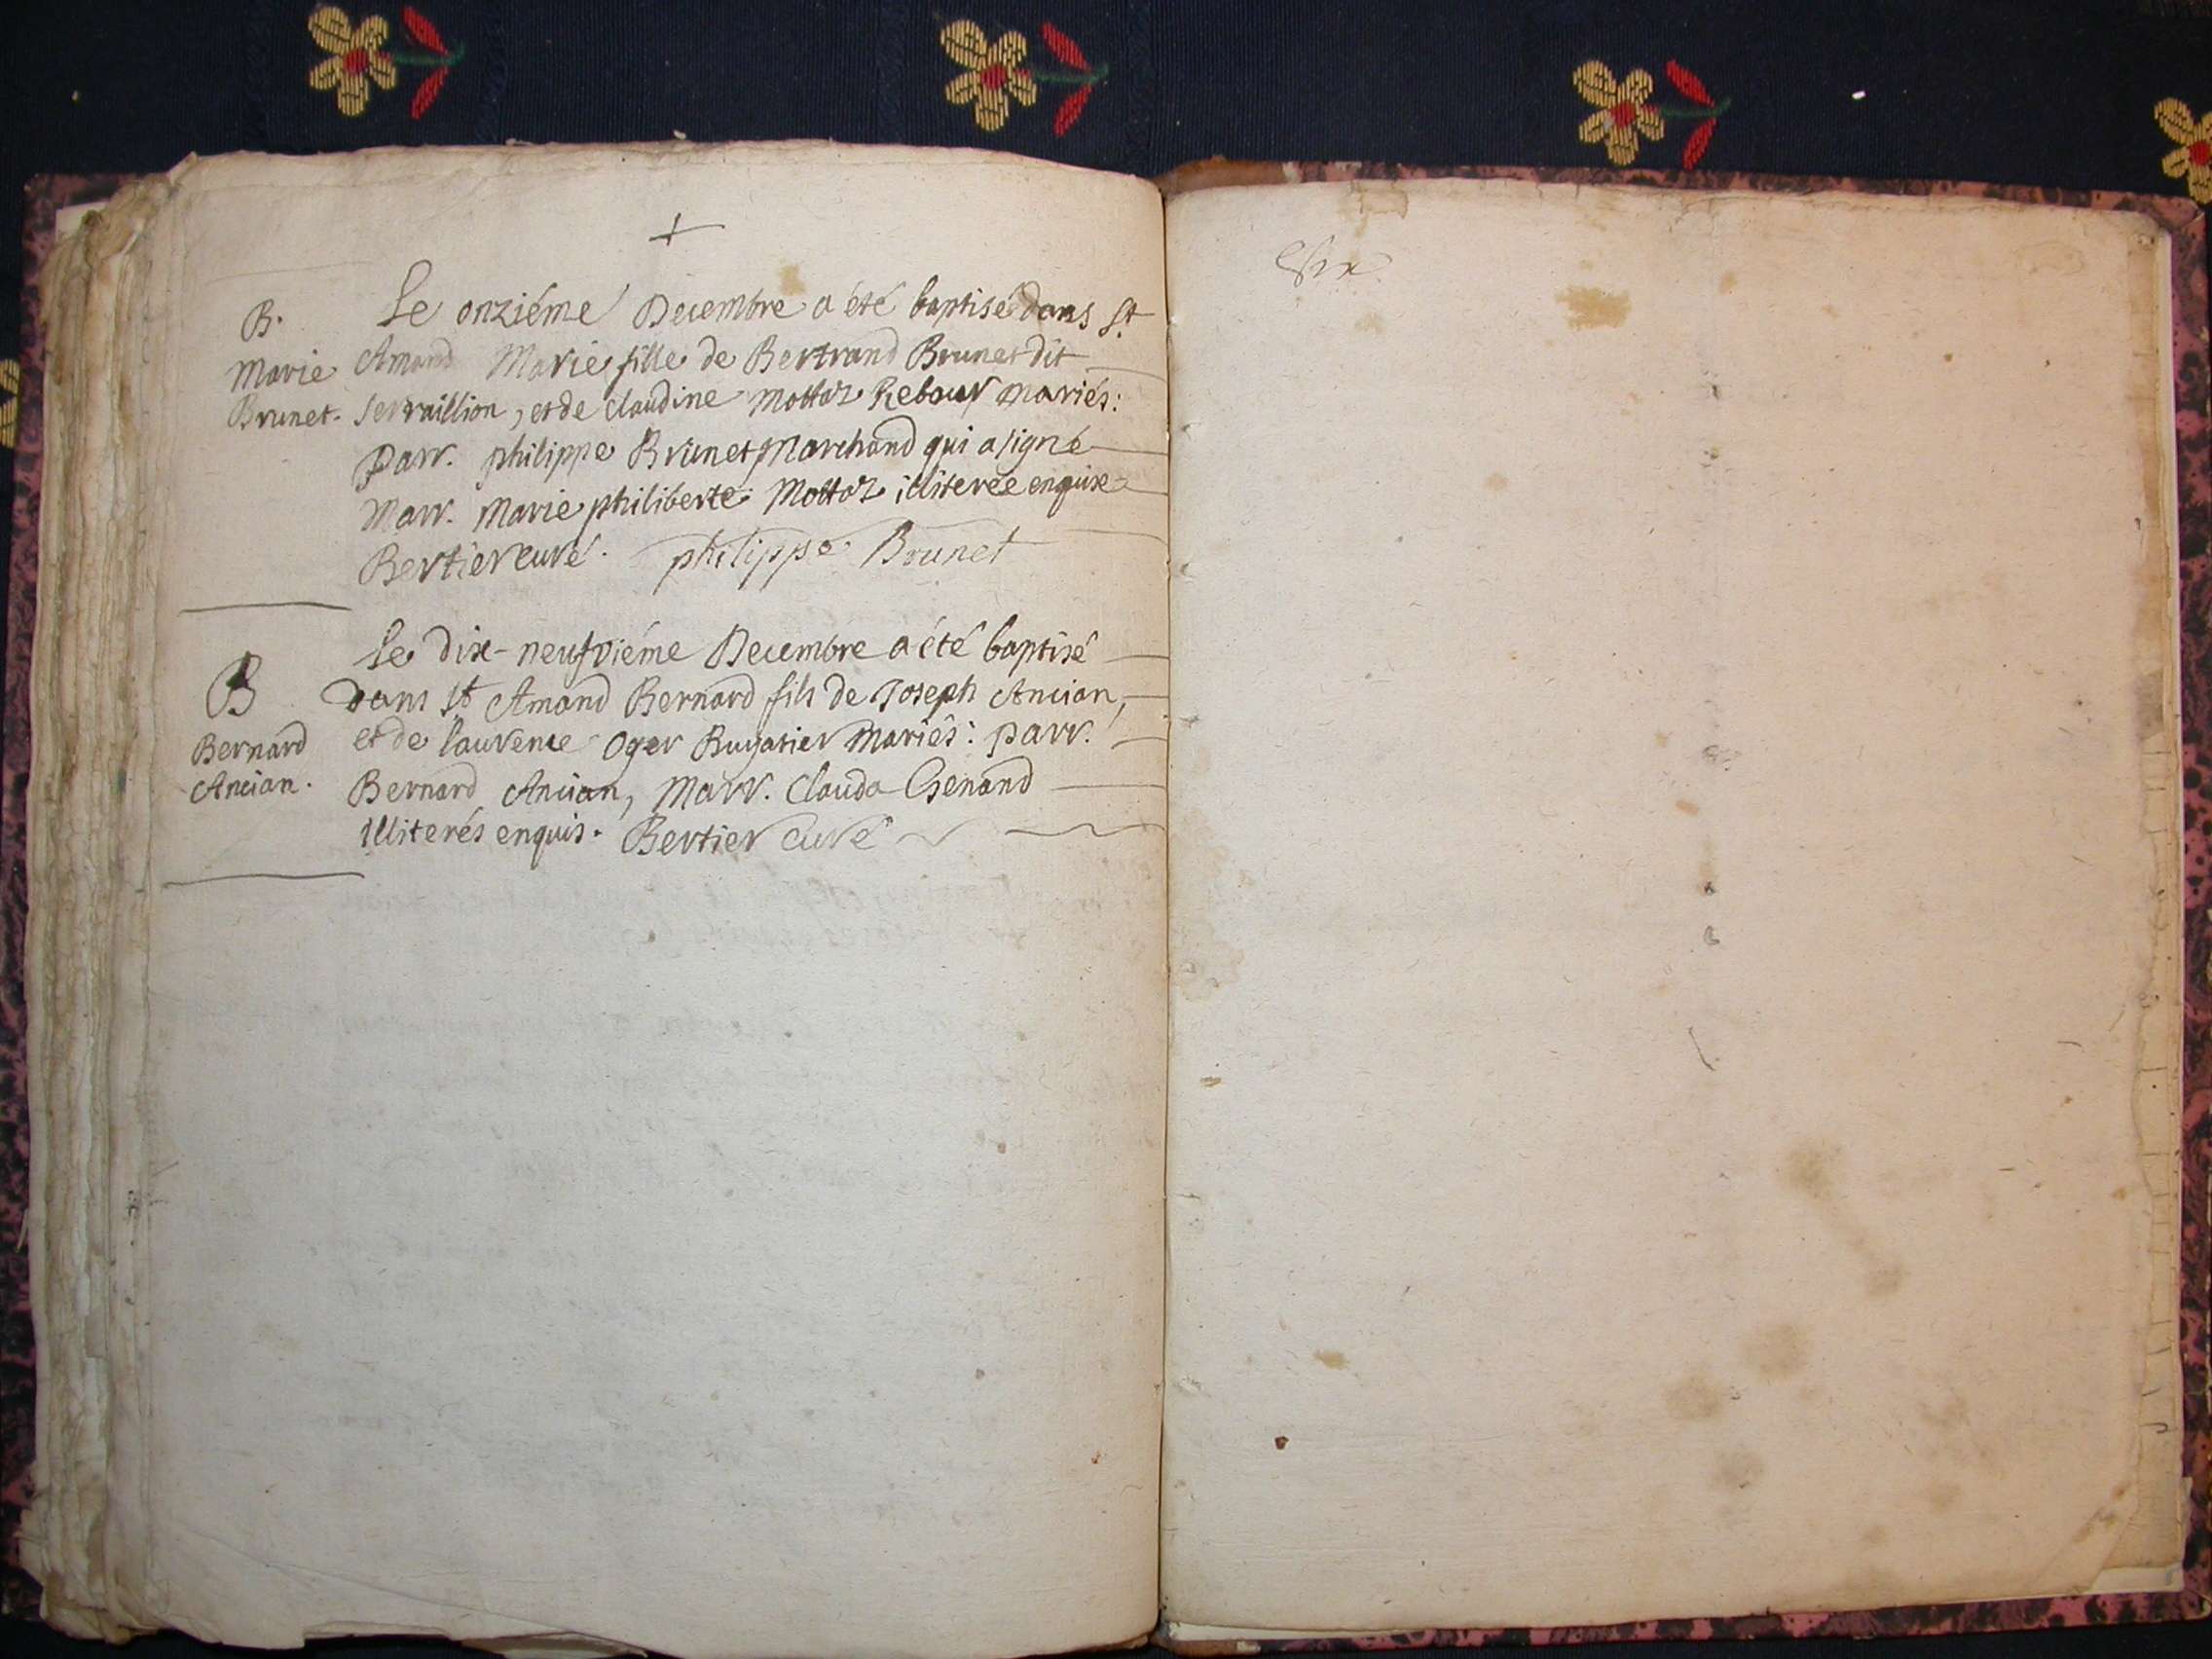 +
B.
Marie
Brunet.
Le onziéme Decembre a été baptisé dans St
Amand Marie fille de Bertrand Brunet dit
Serraillion, et de claudine Mottaz Rebour mariés:
Parr. philippe Brunet Marchand qui a signé
Marr. Marie philiberte Mottaz illiterée enquise
Bertier curé. philippe Brunet
B
Bernard
Ancian.
Le dix-neufviéme Decembre a été baptisé
dans St Amand Bernard fils de Joseph Ancian,
et de laurence Oger Bugatier Mariés: parr.
Bernard Ancian, Marr. Clauda Genand
illiterés enquis. Bertier curé